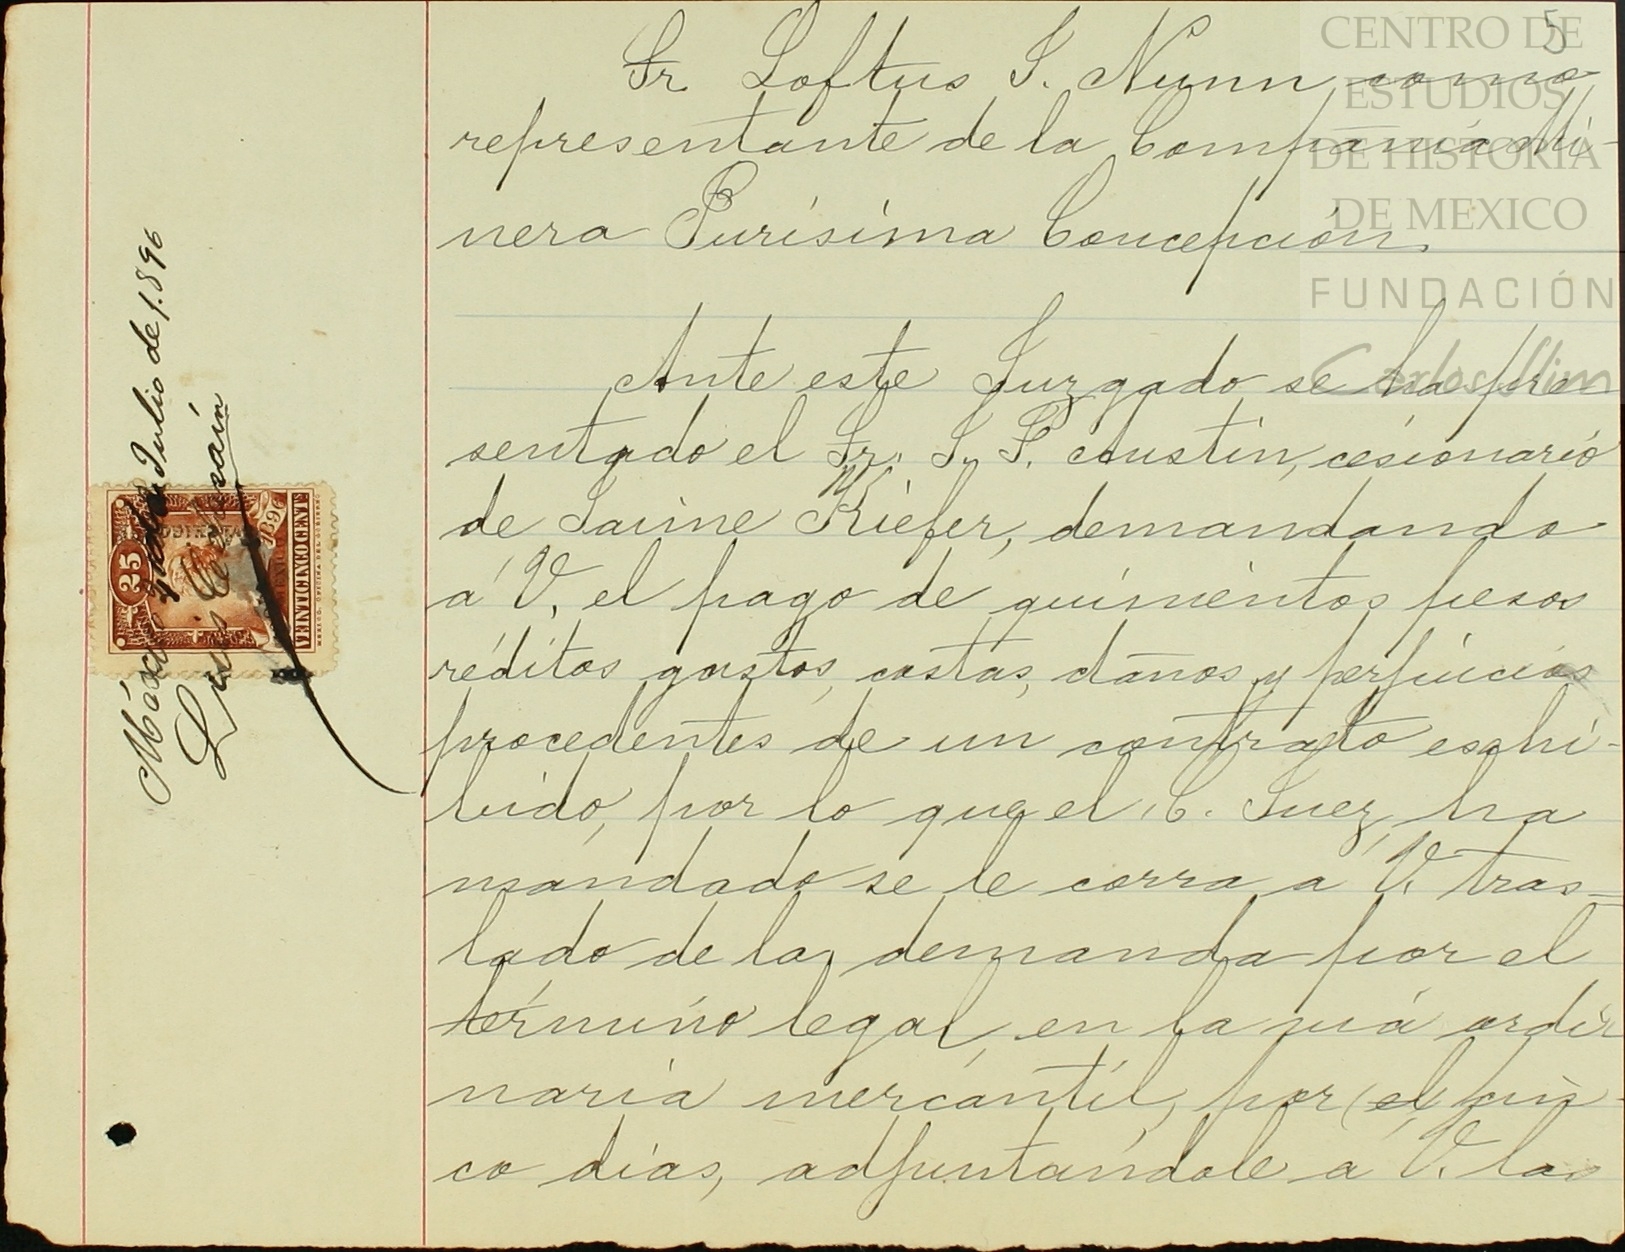 5
CENTRO DE
ESTUDIOS
DE HISTORIA
DE MEXICO
FUNDACIÓN
Carlos Slim
Sr. Loftus J. Nunn como
representante de la Compañía Mi-
nera Purísima Concepción.
Ante este Juzgado se ha pre
sentado el Sr. S. P. Austin, cesionario
de Jaime Kiefer, demandando
á V. el pago de quinientos pesos
réditos gastos, costas, daños y perjuicios
procedentes de un contrato exhi-
bido, por lo que el C. Juez, ha
mandado se le corra á V. tras=
lado de la demanda por el
término legal en la vía ordi
naria mercantil, por (el cin-
co días, adjuntándole a V. las
Julio de 1.896
Luis
25
1896
VEINTICINCO CENT